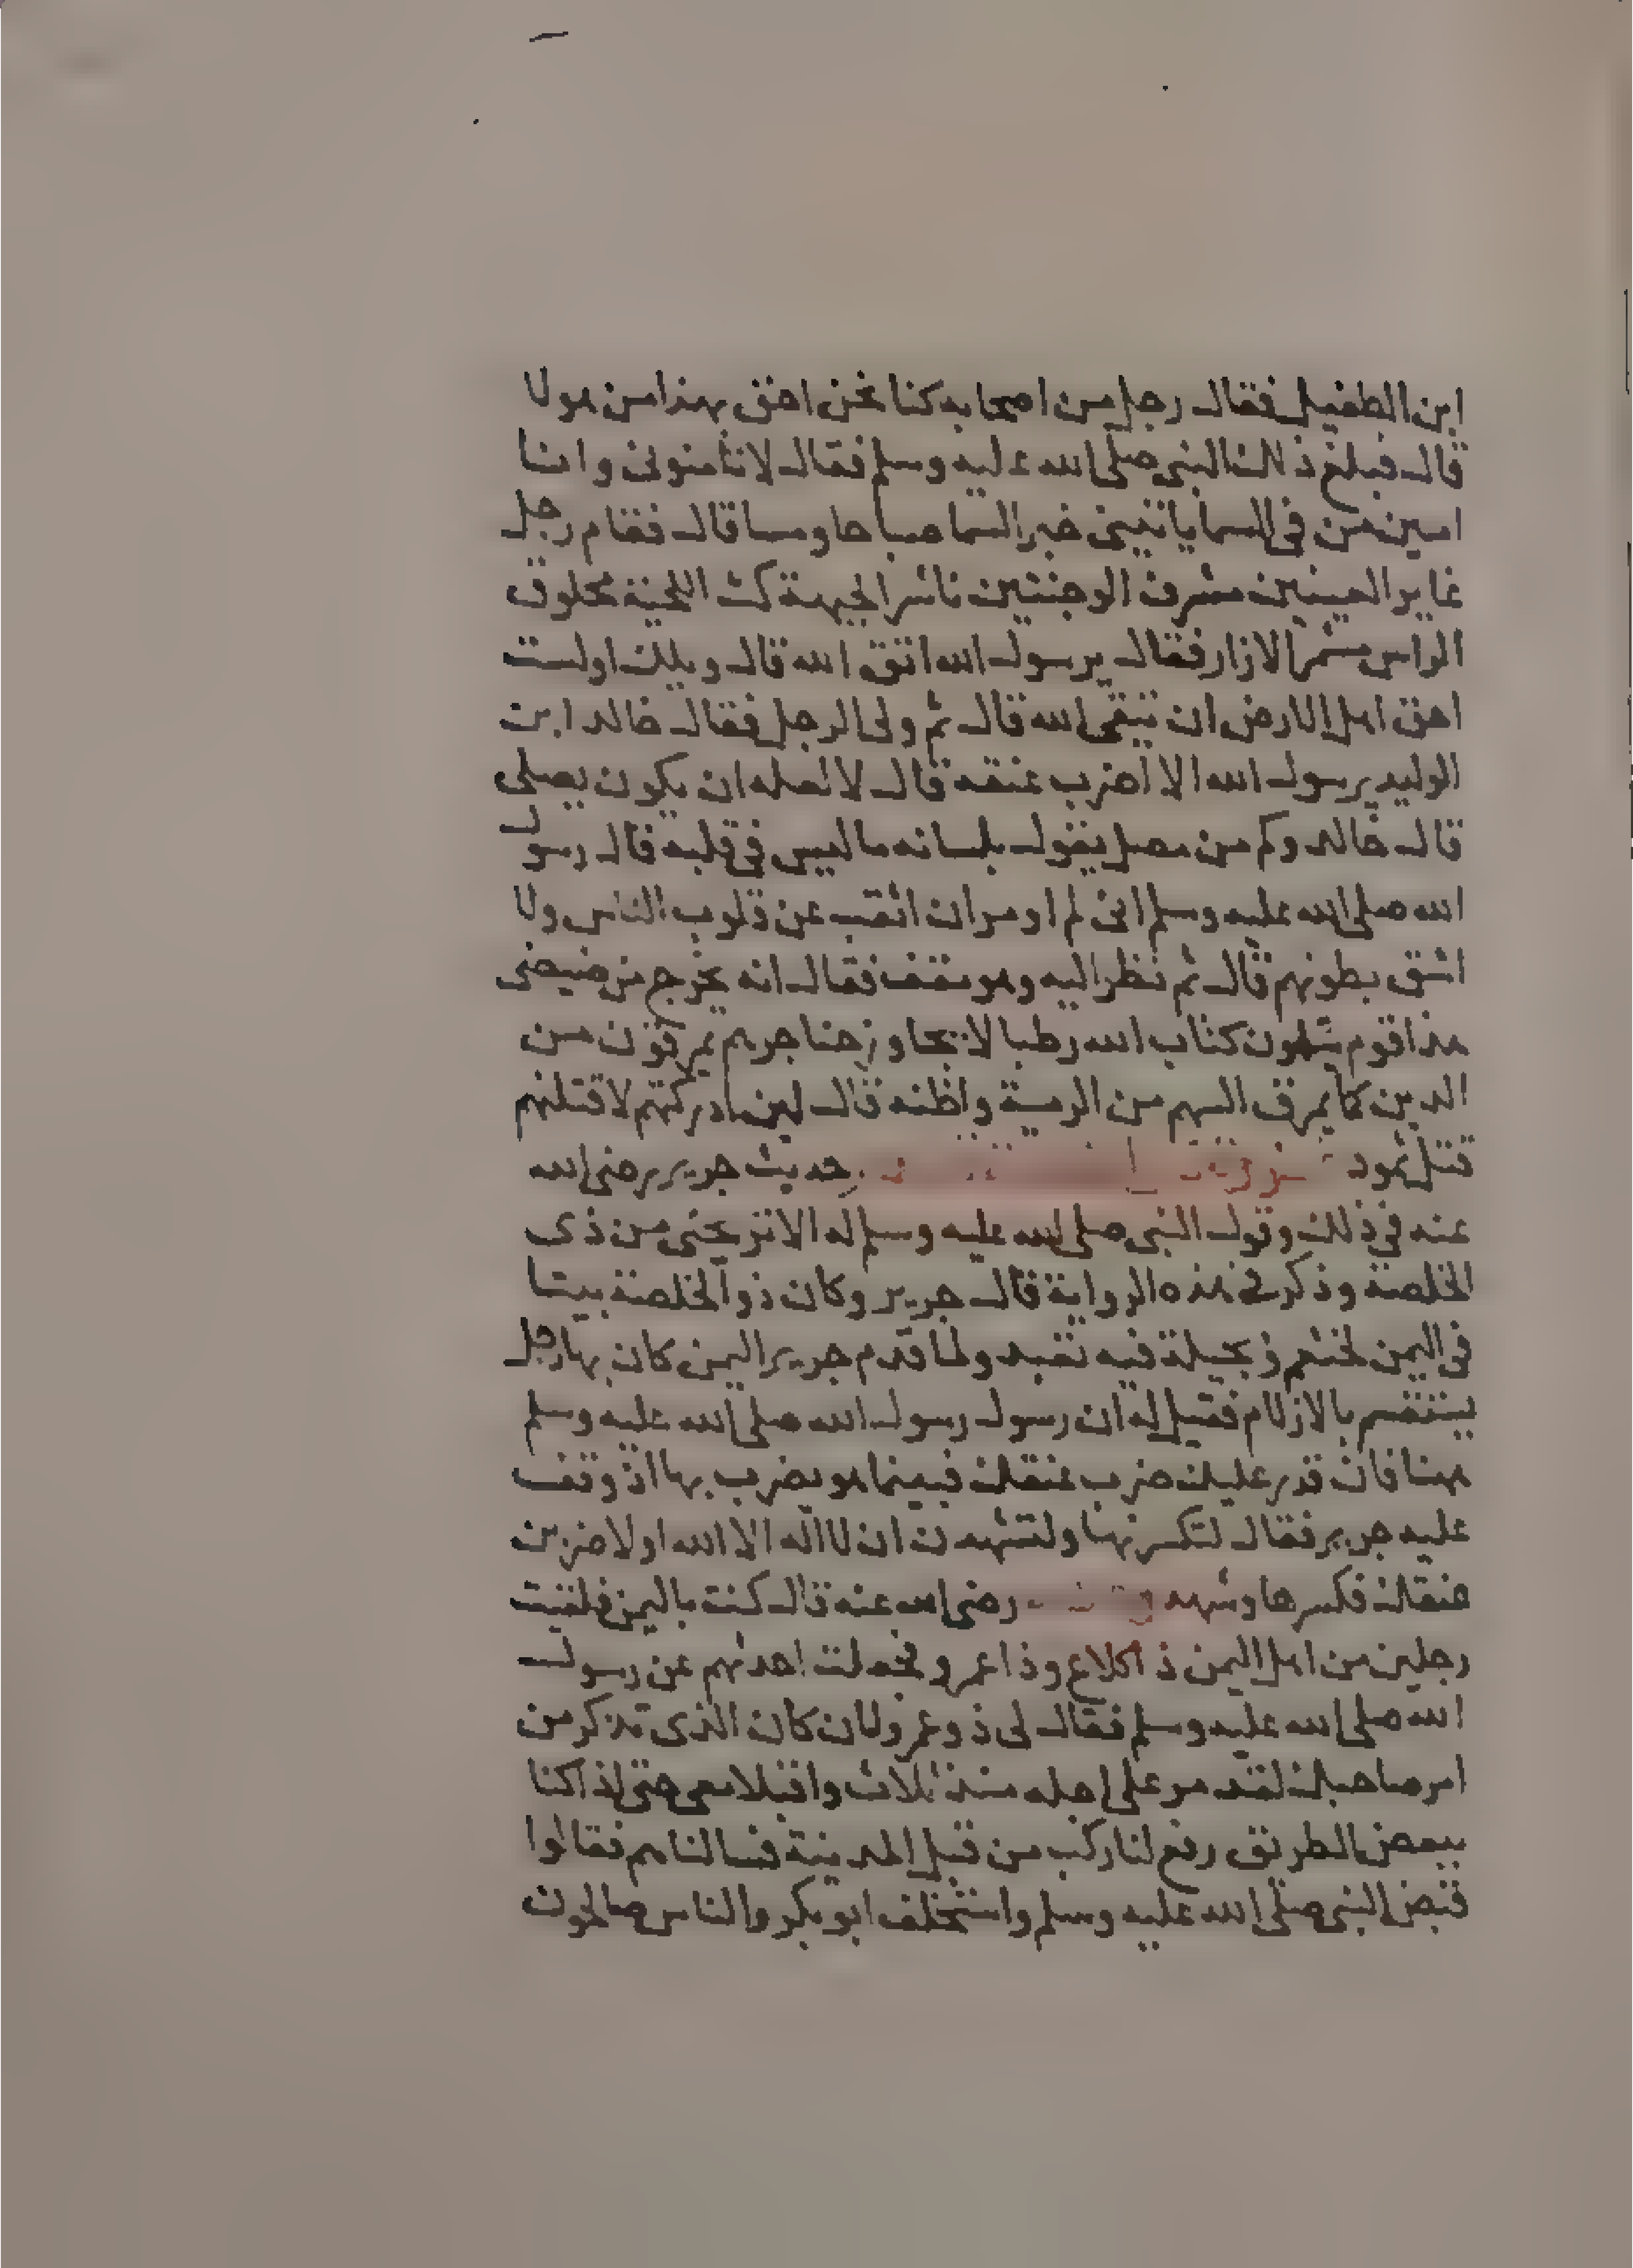 ابن الطفيل فقال رجل من اصحابه كنا نحن احق بهذا من هولا
قال فبلغ ذلك النبى صلى الله عليه وسلم فقال لا تأمنونى وانا
امين من فى السما ياتينى خبر السما صباحا ومسا قال فقام رجل
غاير العينين مشرف الوجنتين ناشز الجبهة كث اللحية محلوق
الراس مشمر الازار فقال يرسول الله اتق الله قال ويلك اولست
احق اهل الارض ان يتقى الله قال ثم ولى الرجل فقال خالد ابن
الوليد يرسول الله الا اضرب عنقه قال لا لعله ان يكون يصلى
قال خالد وكم من مصل يقول بلسانه ما ليس فى قلبه قال رسول
الله صلى الله عليه وسلم انى لم اومر ان انقب عن قلوب الناس ولا
اشق بطونهم قال ثم نظر اليه وهو مقف فقال انه يخرج من ضيضى
هذا قوم يتلون كتاب الله رطبا لا يجاوز حناجرهم يمرقون من
الدين كما يمرق السهم من الرمية واظنه قال لين ادركتهم لاقتلنهم
قتل ثمود حديث جرير رضى الله
عنه فى ذلك وقول النبى صلى الله عليه وسلم له الا تريحنى من ذى
الخلصة وذكر فى هذه الرواية قال جرير وكان ذو الخلصة بيتا
فى اليمن لخثعم وبجيلة فيه نصب تعبد ولما قدم جرير اليمن كان بها رجل
يستقسم بالازلام فقيل له ان رسول رسول الله صلى الله عليه وسلم
ههنا فان قدر عليك ضرب عنقك فبينما هو يضرب بها اذ وقف
عليه جرير فقال لتكسرنها ولتشهدن ان لا اله الا الله او لاضربن
عنقك فكسرها وشهد رضى الله عنه قال كنت باليمن فلقيت
رجلين من اهل اليمن ذا كلاع وذا عمرو فجعلت احدثهم عن رسول
الله صلى الله عليه وسلم فقال لى ذو عمرو لان كان الذى تذكر من
امر صاحبك لقد مر على اجله منذ ثلاث واقبلا معى حتى اذا كنا
ببعض الطريق رفع لنا ركب من قبل المدينة فسالناهم فقالوا
قبض النبى صلى الله عليه وسلم واستخلف ابو بكر والناس صالحون